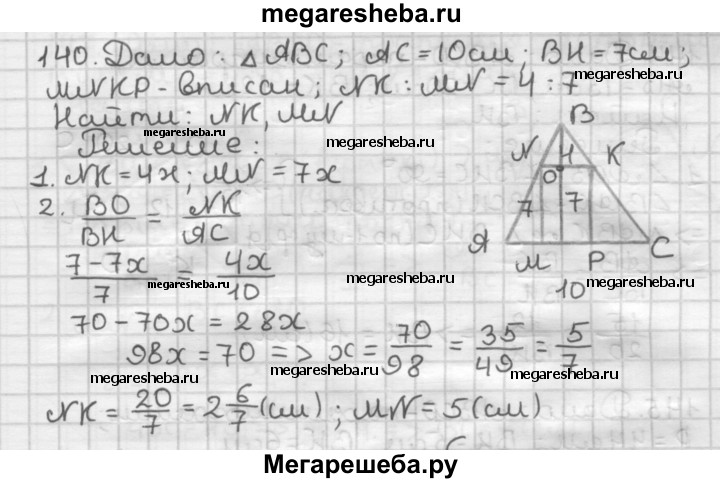 megaresheba.ru
140. Дано: △ABC; AC = 10 см; BH = 7 см;
MNKP - вписан; NK : MN = 4 : 7
megaresheba.ru
Найти: NK, MN
megaresheba.ru
Решение:
megaresheba.ru
1. NK = 4x; MN = 7x
2. BO/BH = NK/AC
(7 - 7x)/7 = 4x/10
megaresheba.ru
megaresheba.ru
70 - 70x = 28x
98x = 70 => x = 70/98 = 35/49 = 5/7
megaresheba.ru
megaresheba.ru
NK = 20/7 = 2 6/7 (см); MN = 5 (см)
B
N H K
O
7 7
A M P C
10
megaresheba.ru
megaresheba.ru
Мегарешеба.ру